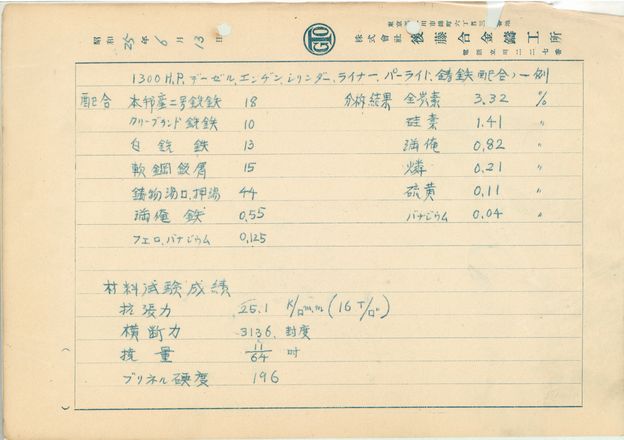 昭和 25年 6月 13日
GTO
株式會社 後藤合金鑄工所
電話立川二二七番
1300H.P.デーゼル.エンヂン.シリンダー.ライナー.パーライト.鋳鉄配合ノ一例
配合 本邦産二号銑鉄 18 分析結果 全炭素 3.32 %
クリーブランド銑鉄 10 硅素 1.41 〃
白銑鉄 13 満俺 0.82 〃
軟鋼鈑屑 15 燐 0.21 〃
鋳物湯口、押湯 44 硫黄 0.11 〃
満俺鉄 0.55 バナジウム 0.04 〃
フエロ.バナジウム 0.125
材料試験成績
抗張力 25.1 K/□m.m (16 T/□")
横断力 3136. 封度
撓量 11/64 吋
ブリネル硬度 196